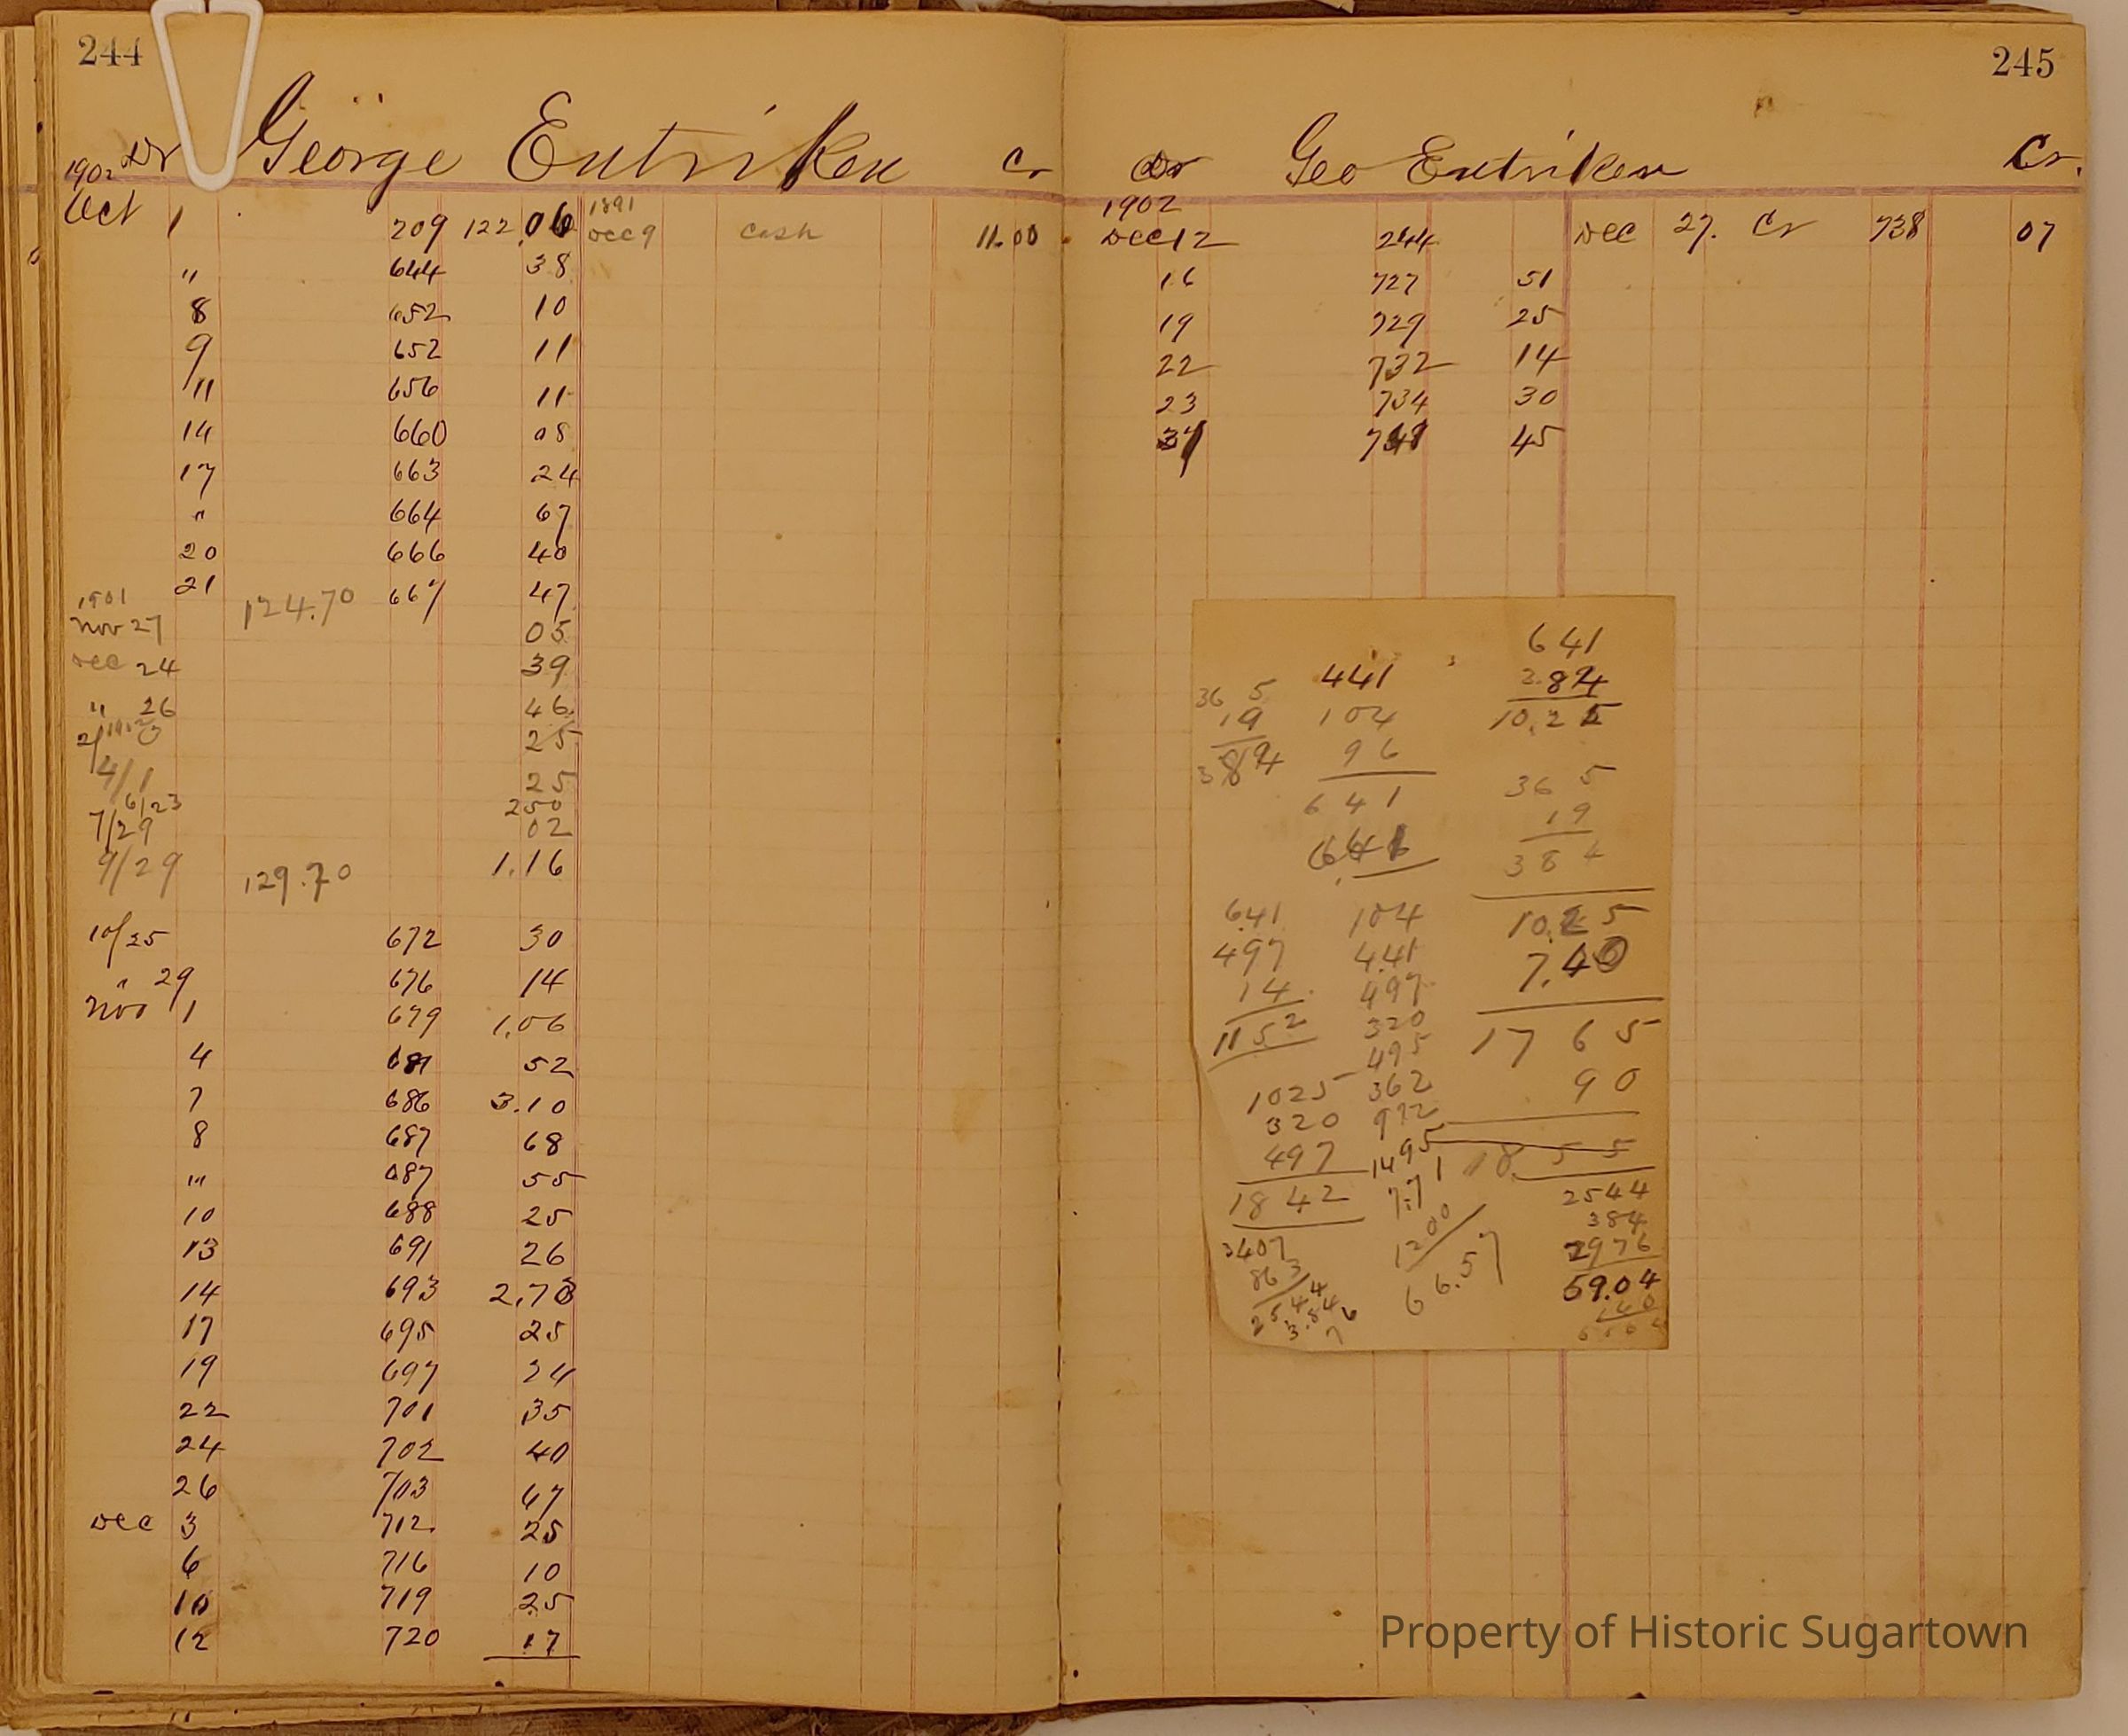 244
1902 Dr George Entriken Cr
Oct 1 209 122.06 1891 Dec 9 cash 11.00
" 644 38
8 652 10
9 652 11
11 656 11
14 660 08
17 663 24
" 664 67
20 666 40
21 124.70 667 47
1901
Nov 27 05
Dec 24 39
" 26 46
25
4/1 25
6/23 250
7/29 02
9/29 129.70 1.16
10/25 672 30
" 29 676 14
Nov 1 679 1.06
4 681 52
7 686 3.10
8 687 68
" 687 55
10 688 25
13 691 26
14 693 2.78
17 695 25
19 697 24
22 701 35
24 702 40
26 703 47
Dec 3 712 25
6 716 10
10 719 25
12 720 17
245
Dr Geo Entriken Cr.
1902
Dec 12 244 Dec 27. Cr 738 07
16 727 51
19 729 25
22 732 14
23 734 30
31 741 45
36 5
19
384
441
104
96
641
641
641
3.84
10.25
36 5
19
384
10.25
7.40
17 65
90
18.55
641
497
14
1152
104
4.41
497
320
495
362
972
1495
7.71
1200
66.57
1025
320
497
1842
3407
863
2544
3.84
2544
384
2976
59.04
Property of Historic Sugartown